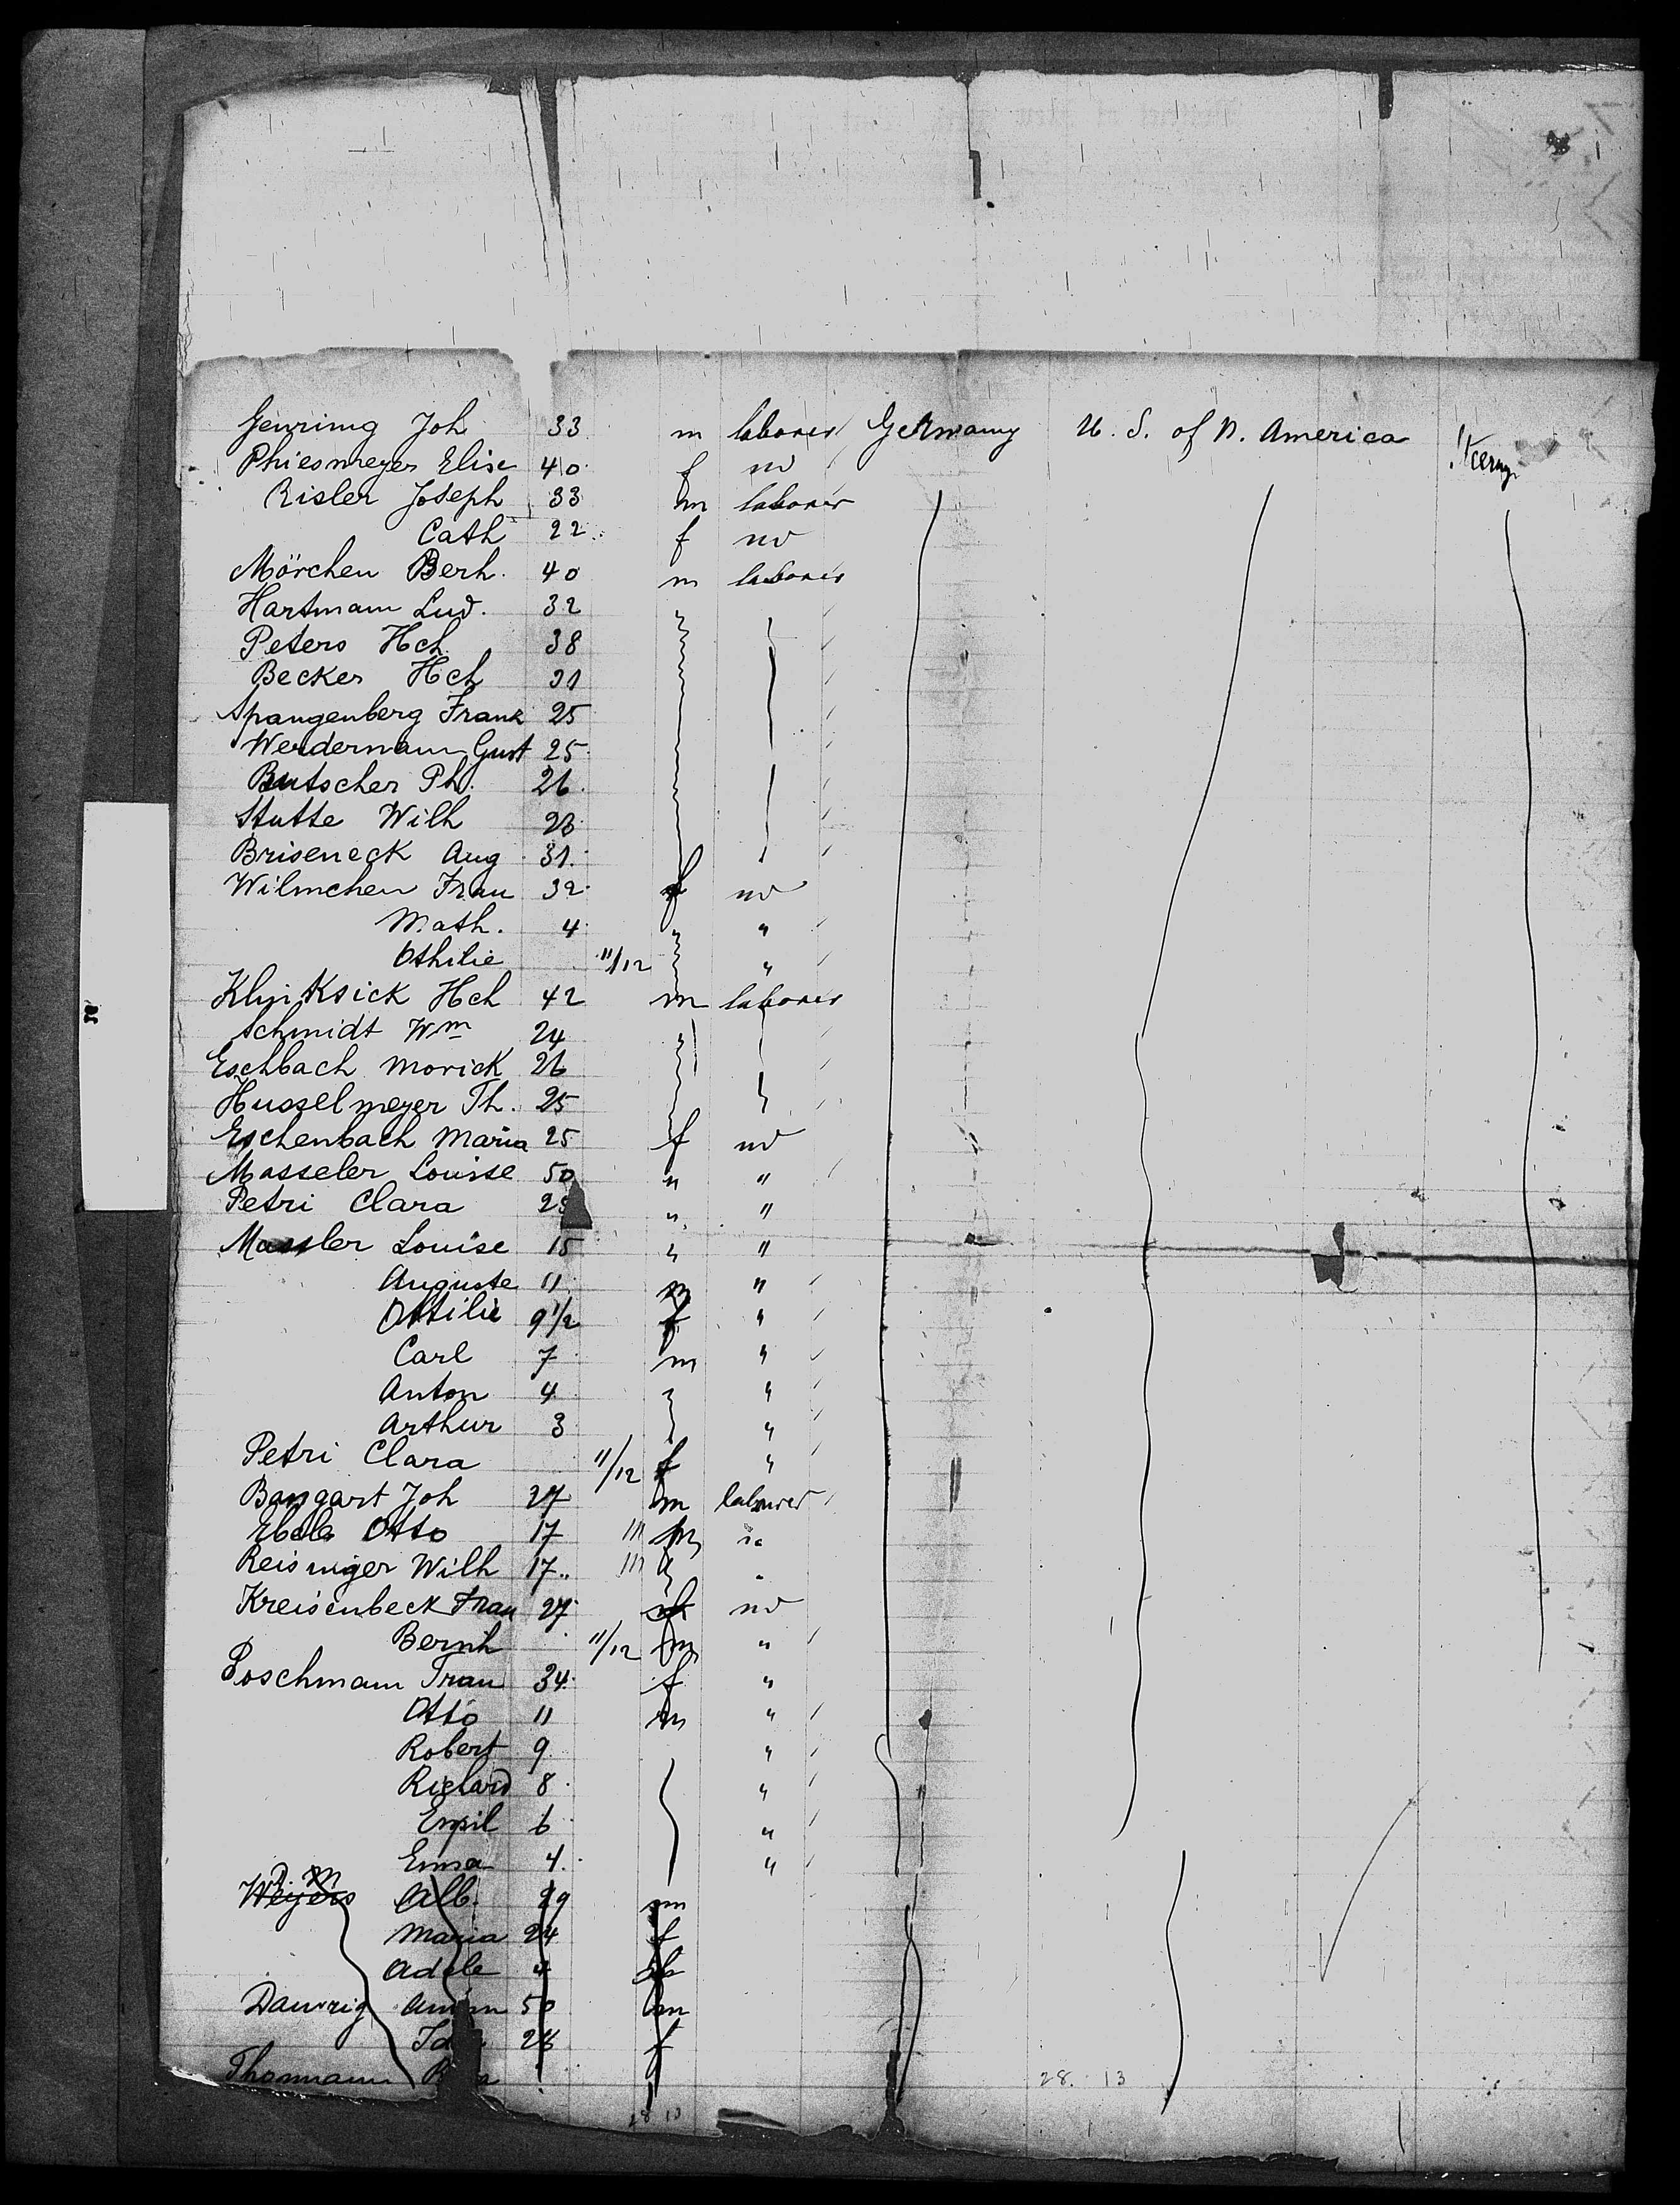 Genrimg Joh 33 m laborer Germany U. S. of N. America Steerage
Phiesmeyer Elise 40 f no
Risler Joseph 33 m laborer
Cath 22 f no
Mörchen Berh. 40 m laborer
Hartmann Lud. 32
Peters Hch. 38
Becker Hch 31
Spangenberg Frank 25
Werdermann Gust 25
Butscher Ph. 26
Stutte Wilh 23
Briseneck Aug 31.
Wilmchen Frau 32 f no
Math. 4 "
Othilie 11/12 "
Klinksick Hch 42 m laborer
Schmidt Wm 24
Eschbach Morick 26
Husselmeyer Th. 25
Eschenbach Maria 25 f no
Masseler Louise 50 " "
Petri Clara " "
Massler Louise 15 " "
Auguste 11 m "
Ottilie 9 1/2 f "
Carl 7 m "
Anton 4 "
Arthur 3 "
Petri Clara 11/12 f "
Bangart Joh 27 m laborer
Otto 17 m "
Reisniger Wilh 17 "
Kreisenbeck Frau 27 f no
Bernh 11/12 m "
Poschmann Frau 34 f "
Otto 11 m "
Robert 9 "
Richard 8 "
Emil 6 "
Emma 4. "
Weyers Alb. 29 m
Maria 24 f
Adele 4
Danzig 50 m
f
Thomann
28. 13
28 13